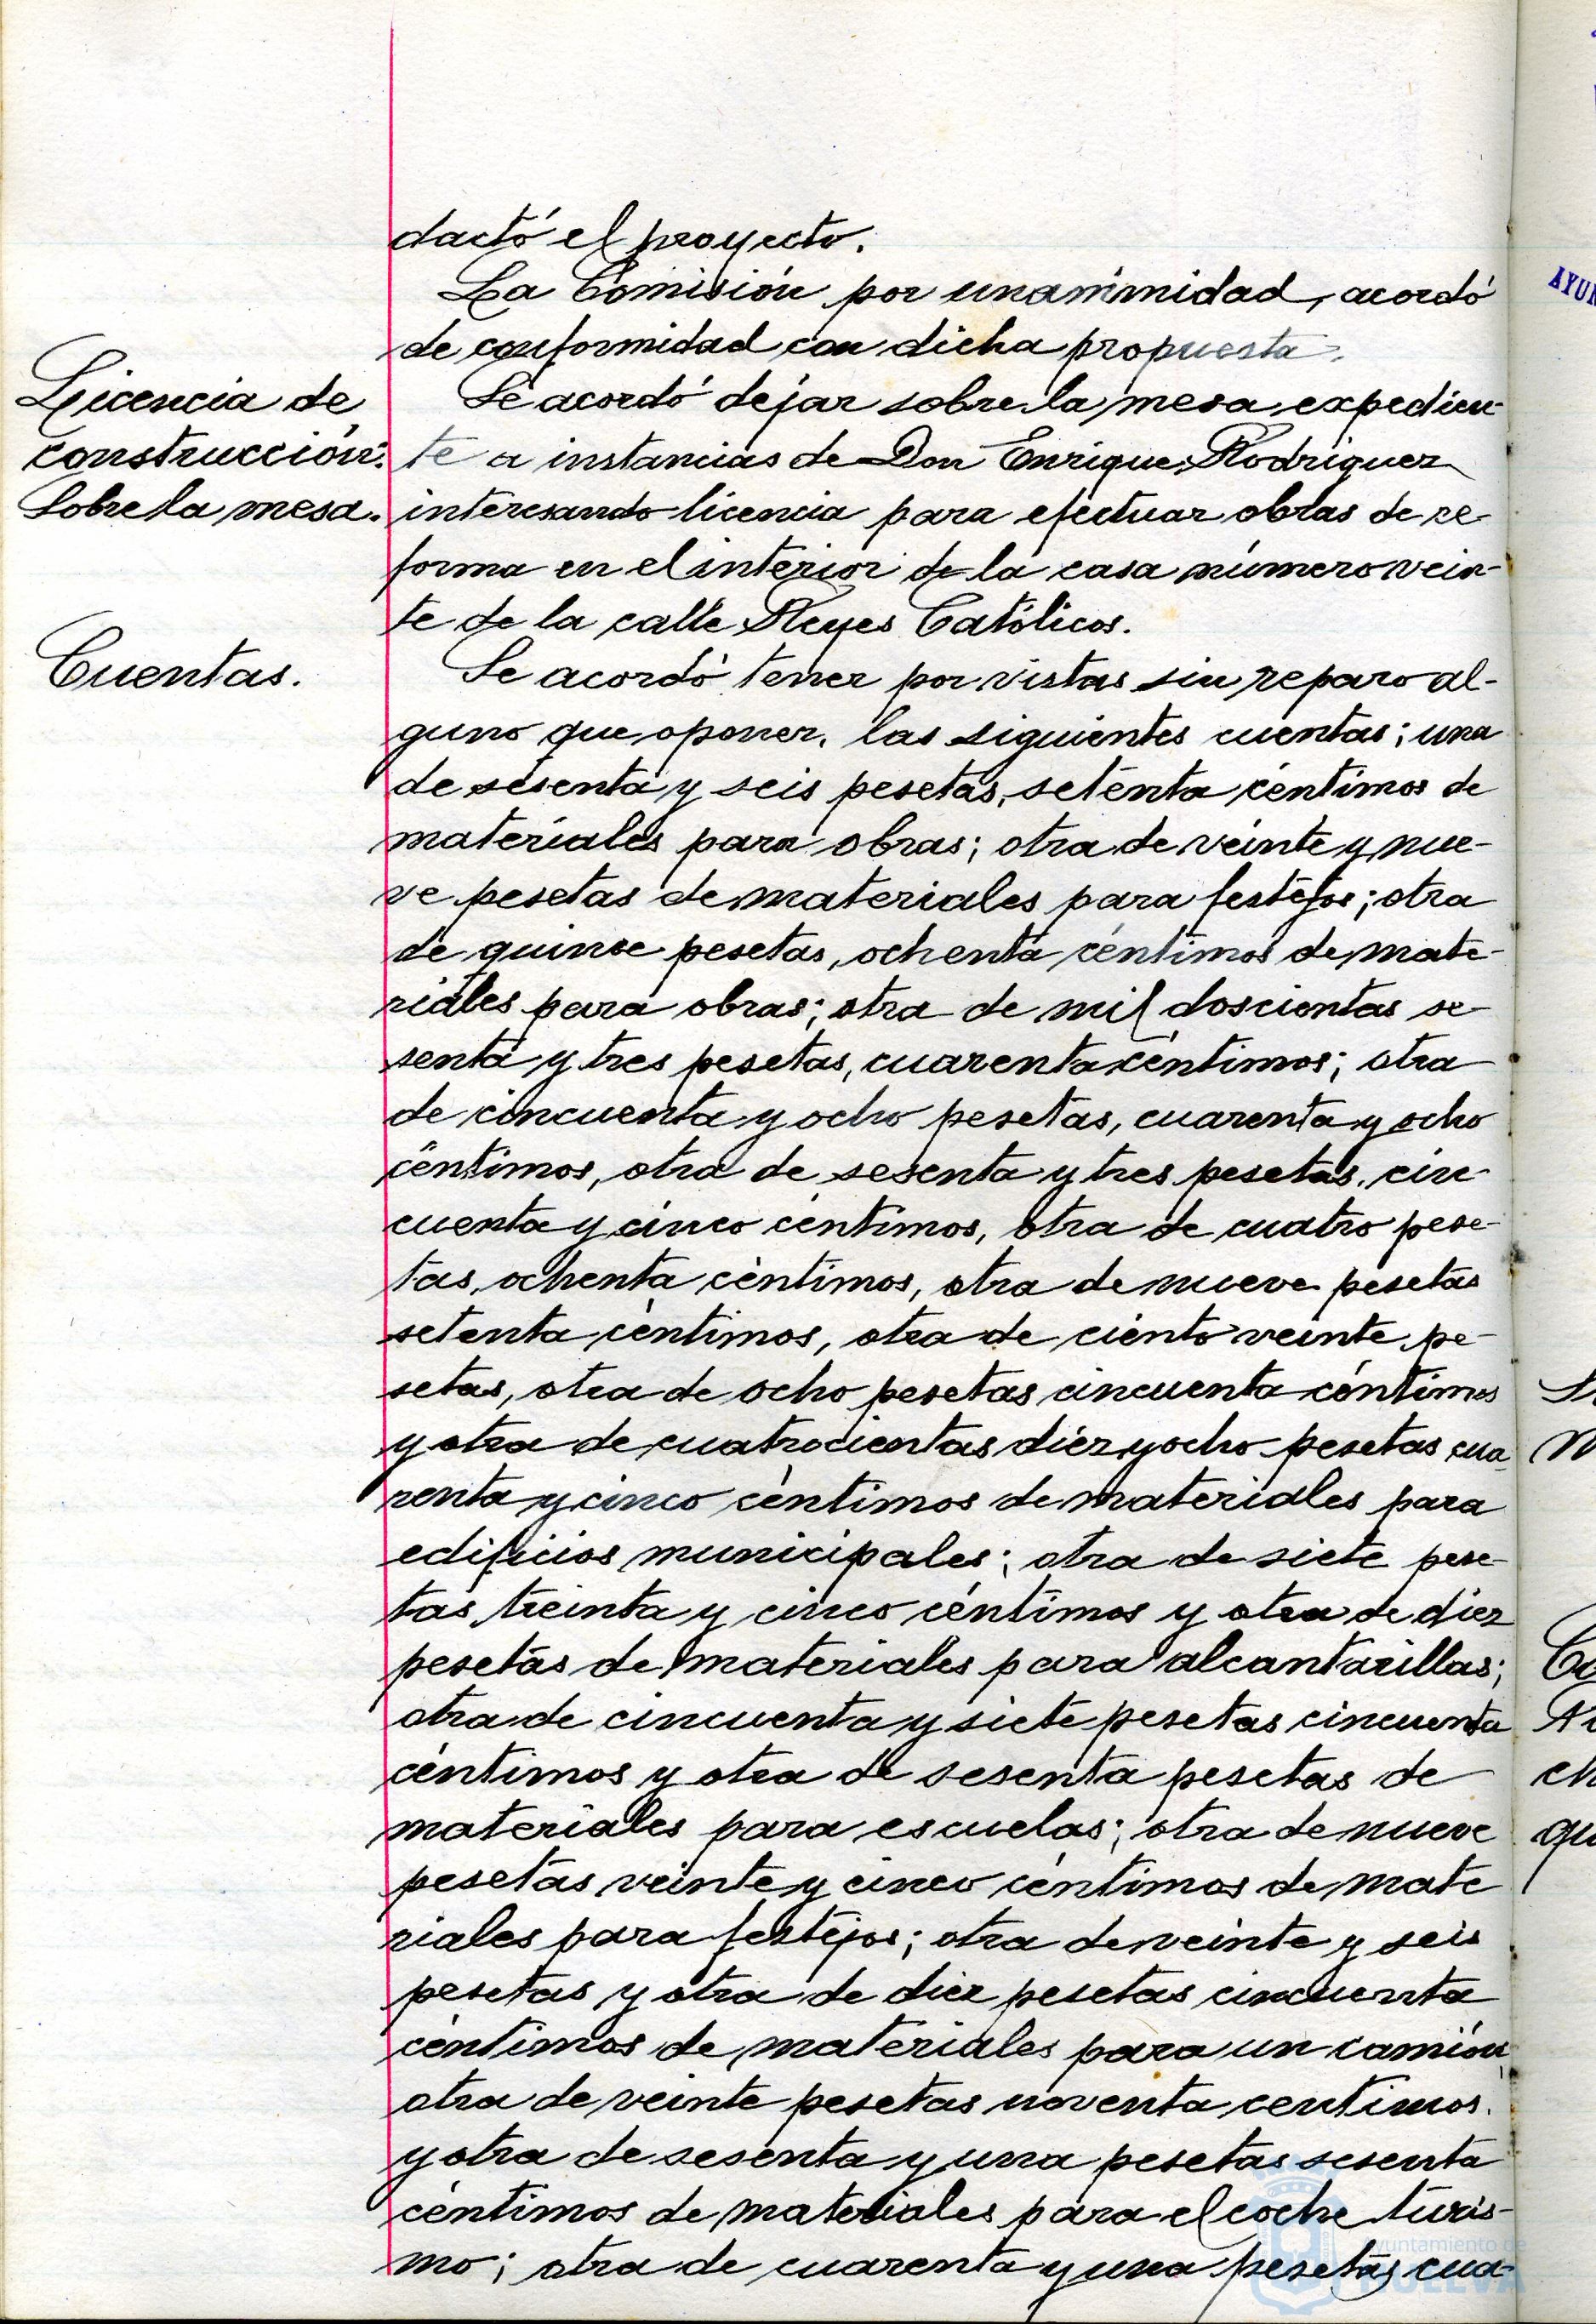 dactó el proyecto.
La Comisión por unanimidad, acordó
de conformidad con dicha propuesta.
Licencia de
construcción.
Sobre la mesa.
Se acordó dejar sobre la mesa expedien-
te a instancias de Don Enrique Rodriguez
interesando licencia para efectuar obras de re-
forma en el interior de la casa número vein-
te de la calle Reyes Católicos.
Cuentas.
Se acordó tener por vistas sin reparo al-
guno que oponer, las siguientes cuentas; una
de sesenta y seis pesetas, setenta céntimos de
materiales para obras; otra de veinte y nue-
ve pesetas de materiales para festejos; otra
de quince pesetas, ochenta céntimos de mate-
riales para obras; otra de mil doscientas se-
senta y tres pesetas, cuarenta céntimos; otra
de cincuenta y ocho pesetas, cuarenta y ocho
céntimos, otra de sesenta y tres pesetas, cin-
cuenta y cinco céntimos, otra de cuatro pese-
tas, ochenta céntimos, otra de nueve pesetas
setenta céntimos, otra de ciento veinte pe-
setas, otra de ocho pesetas cincuenta céntimos
y otra de cuatrocientas diez y ocho pesetas cua-
renta y cinco céntimos de materiales para
edificios municipales; otra de siete pese-
tas, treinta y cinco céntimos y otra de diez
pesetas de materiales para alcantarillas;
otra de cincuenta y siete pesetas cincuenta
céntimos y otra de sesenta pesetas de
materiales para escuelas; otra de nueve
pesetas veinte y cinco céntimos de mate
riales para festejos; otra de veinte y seis
pesetas y otra de diez pesetas cincuenta
céntimos de materiales para un camión;
otra de veinte pesetas noventa centimos.
y otra de sesenta y una pesetas sesenta
céntimos de materiales para el coche turis-
mo; otra de cuarenta y una pesetas cua-
Ayuntamiento de
HUELVA
AYUN